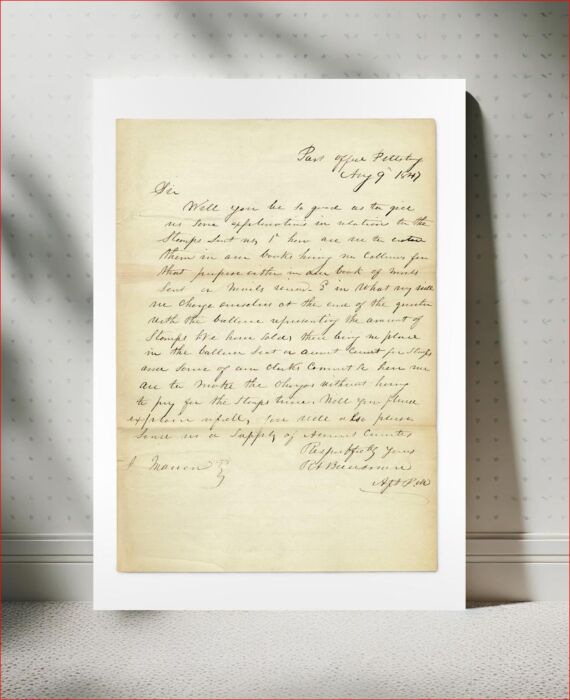 Post Office
Aug 9 1847
Sir
Will you be so good as to give
us some explanation in relation to the
Stamps sent us, 1st how are we to enter
them in our books having no Collums for
that purpose either in our book of mails
sent or mails recd. 2 in what way will
we Charge ourselves at the end of the quarter
with the ballance representing the amount of
Stamps We have sold, there being no place
in the ballance Sheet or account Current for Stamps
and some of our Clerks Cannot see how we
are to make the Charges without having
to pay for the Stamps twice. Will you please
explain
send us a supply of Account Currents
Respectfully yours